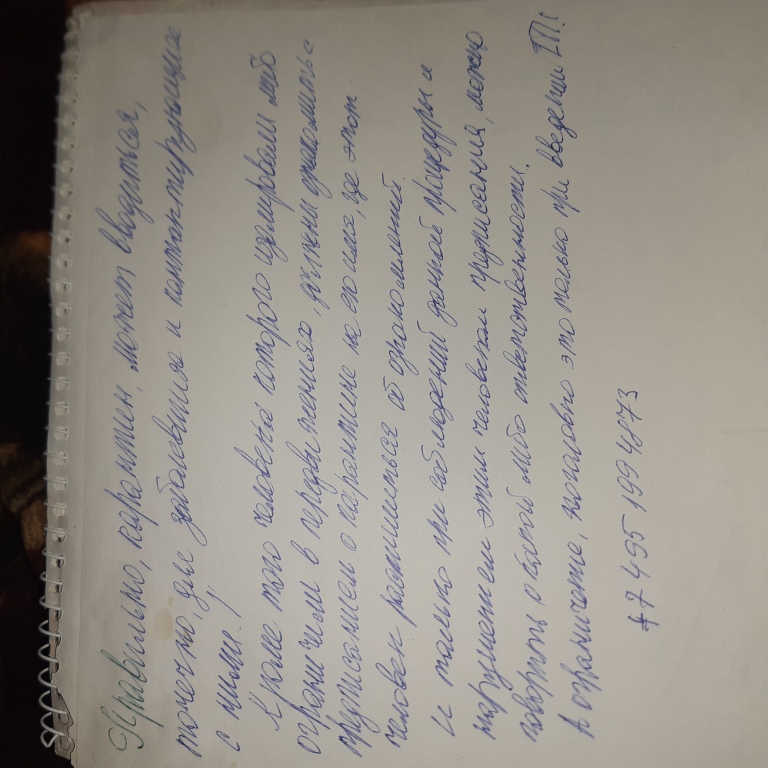 Правильно, карантин, может вводиться,
точечно, для заболевших и контактирующих
с ними!
Кроме того человека которого изолировали либо
ограничили в передвижениях, должны ознакомить с
предписанием о карантине на его имя, где этот
человек распишеться об ознакомлений.
И только при соблюдений данной процедуры и
нарушением этим человеком предписания, можно
говорить о какой либо ответственности.
А ограничете, поголовно это только при введении ЧП!
+7 495 199 4873